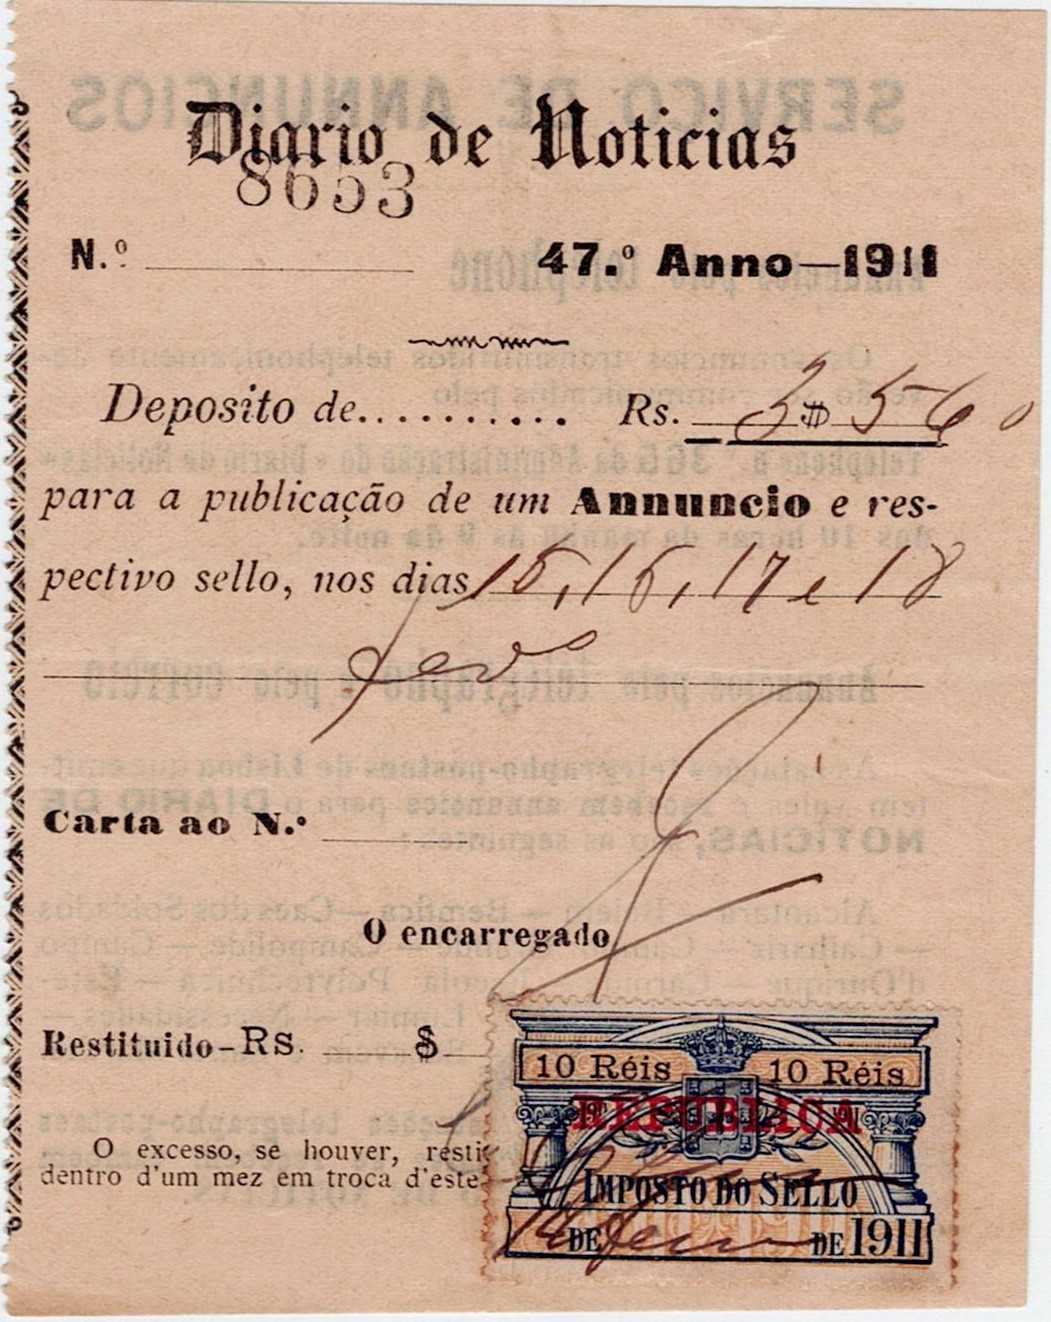 Diario de Noticias
8653
N.º 47.º Anno—1911
Deposito de.......... Rs. 3$560
para a publicação de um Annuncio e res-
pectivo sello, nos dias 15, 16, 17 e 18
Carta ao N.º
O encarregado
Restituido-Rs. $
O excesso, se houver, resti
dentro d'um mez em troca d'este
10 Réis 10 Réis
REPUBLICA
IMPOSTO DO SELLO
14 DE DE 1911